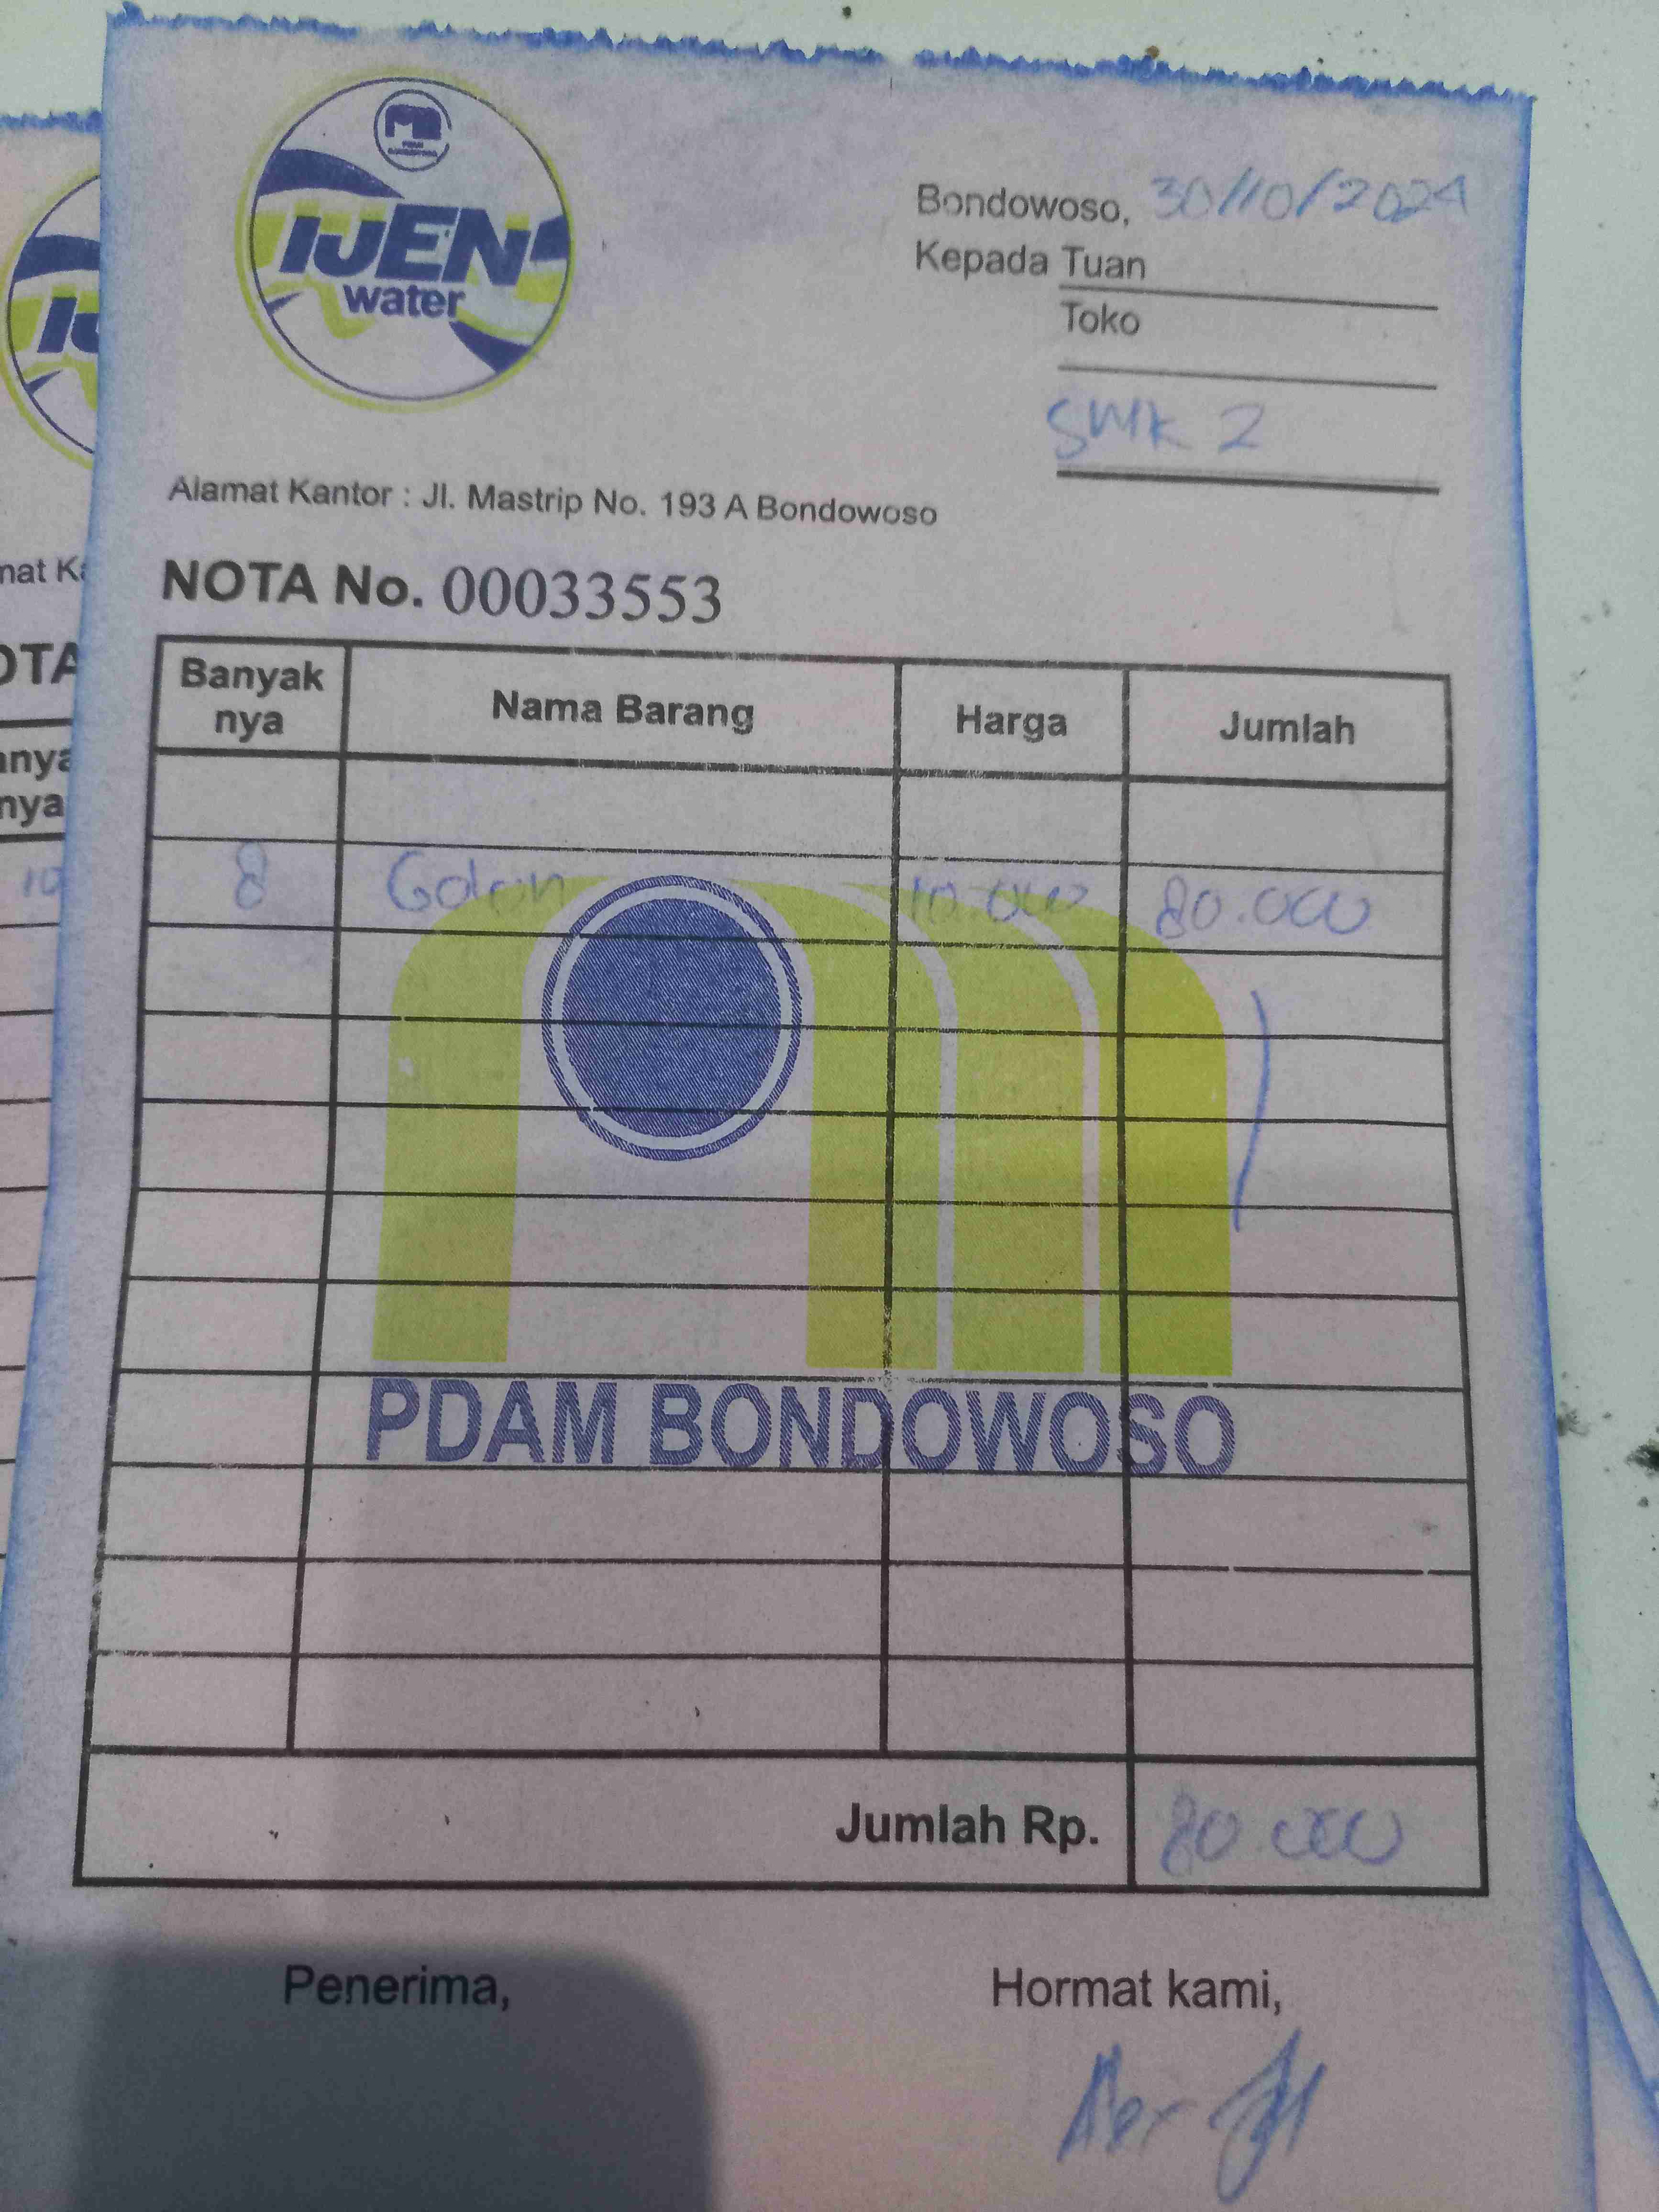 IJEN
water
Bondowoso, 30/10/2024
Kepada Tuan
Toko
SMK 2
Alamat Kantor : Jl. Mastrip No. 193 A Bondowoso
NOTA No. 00033553
Banyak nya Nama Barang Harga Jumlah
8 Galon 10.000 80.000
PDAM BONDOWOSO
Jumlah Rp. 80.000
Penerima, Hormat kami,